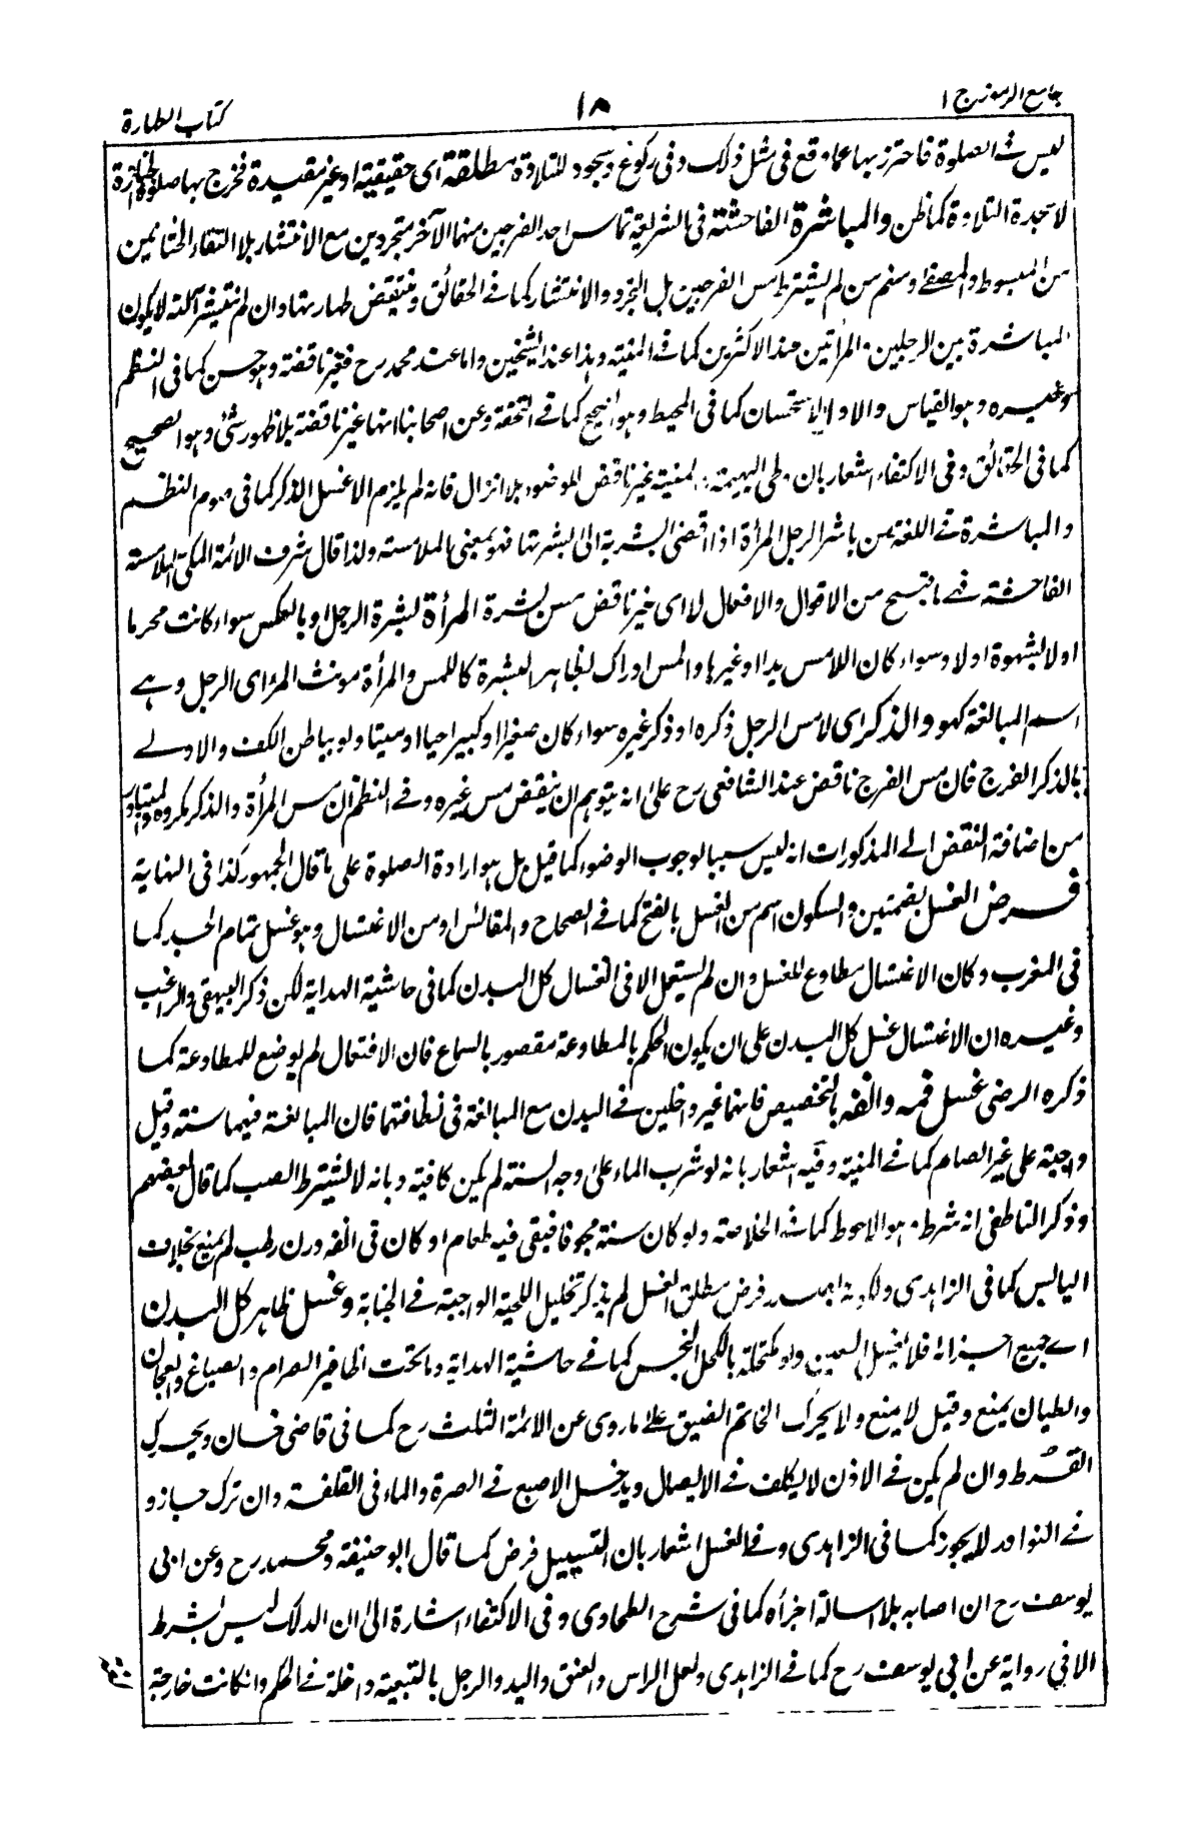 جامع الرموز ج ١
١٨
كتاب الطهارة
ليس فى الصلوة فاحترز بها عما وقع فى مثل ذلك وفى ركوع وسجود للتلاوة مطلقة اى حقيقية او غير مقيدة فخرج بها صلوة الجنازة
لا سجدة التلاوة كما ظن والمباشرة الفاحشة فى الشريعة تماس احد الفرجين منهما الآخر متجردين مع الانتشار بلا التقاء الختانين
من المبسوط والمصفى ومنهم من لم يشترط مس الفرجين بل التجرد والانتشار كما فى الحقائق وتنتقض طهارتها وان لم تنتشر آلته لا يكون
المباشرة بين الرجلين والمرأتين عند الاكثرين كما فى المنية وهذا عند الشيخين واما عند محمد رح فغير ناقضة وهو حسن كما فى النظم
وغيره وهو القياس والاول الاستحسان كما فى المحيط وهو الصحيح كما فى التحفة وعن اصحابنا انها غير ناقضة بلا ظهور شئ وهو الصحيح
كما فى الحقائق وفى الاكتفاء اشعار بان وطى البهيمة والميتة غير ناقض للوضوء بلا انزال فانه لم يلزم الا غسل الذكر كما فى صوم النظم
والمباشرة فى اللغة من باشر الرجل المرأة اذا افضى البشرية الى البشرتها فهو بمعنى الملامسة ولذا قال شرف الائمة المكى الملامسة
الفاحشة فهى ما قبح من الاقوال والافعال لا اى غير ناقض مس بشرة المرأة لبشرة الرجل او بالعكس سواء كانت محرما
اولا لشهوة اولا وسواء كان اللامس يدا او غيرها والمس ادراك لظاهر البشرة كاللمس والمرأة مونث المرء اى الرجل وهے
اسم المبالغة كهو والذكر اى لامس الرجل ذكره او ذكر غيره سواء كان صغيرا او كبيرا حيا او ميتا ولو بباطن الكف والاولے
بالذكر الفرج فان مس الفرج ناقض عند الشافعى رح على انه يتوهم ان ينقض مس غيره وفے النظم ان مس المرأة والذكر مكروه
من اضافة النقض الے المذكورات انه ليس سببا لوجوب الوضوء كما قيل بل هو ارادة الصلوة على ما قال الجمهور كذا فى النهاية
فرض الغسل بضمتين والسكون اسم من الغسل بالفتح كما فے الصحاح والمقائس او من الاغتسال وهو غسل تمام الجسد كما
فى المغرب وكان الاغتسال مطاوع للغسل وان لم يستعمل الا فى اغتسال كل البدن كما فى حاشية الهداية لكن ذكر البيهقى والراغب
وغيره ان الاغتسال غسل كل البدن على ان يكون الحكم بالمطاوعة مقصور بالسماع فان الافتعال لم يوضع للمطاوعة كما
ذكره الرضى غسل فمه وانفه بالتخصيص فانهما غير داخلين فے البدن مع المبالغة فى نظافتهما فان المبالغة فيهما سنة وقيل
واجبة على غير الصائم كما فے المنية وفيه اشعار بانه لو شرب الماء على وجه السنة لم يكن كافية وبانه لا يشترط الصب كما قال بعضهم
وذكر الناطفى انه شرط وهو الاحوط كما فے الخلاصة ولو كان سنة مجوفا فبقى فيه طعام او كان فى انفه درن رطب لم يمنع بخلاف
اليابس كما فى الزاهدى ولانه بصدد فرض مطلق الغسل لم يذكر تخليل اللحية الواجبة فے الجنابة وغسل ظاهر كل البدن
اے جميع اجزائه فلا يغسل العين ولو مكتحلة بالكحل النجس كما فے حاشية الهداية وما تحت اظافير الصرام والصباغ والعجان
والطيان يمنع وقيل لا يمنع ولا يحرك الخاتم الضيق علے ما روى عن الائمة الثلث رح كما فى قاضى خان ويحرك
القرط وان لم يكن فے الاذن لا يكلف فے الايصال ويدخل الاصبع فے الصرة والماء فى القلفة وان ترك جاز و
فے النوادر لا يجوز كما فى الزاهدى وفے الغسل اشعار بان التسييل فرض كما قال ابو حنيفة ومحمد رح وعن ابى
يوسف رح ان اصابه بلا اسالة اجزأه كما فى شرح الطحاوى وفى الاكتفاء اشارة الى ان الدلك ليس بشرط
الا فى رواية عن ابى يوسف رح كما فے الزاهدى ولعل الراس والعنق واليد والرجل بالتبعية داخلة فے الحكم وان كانت خارجة